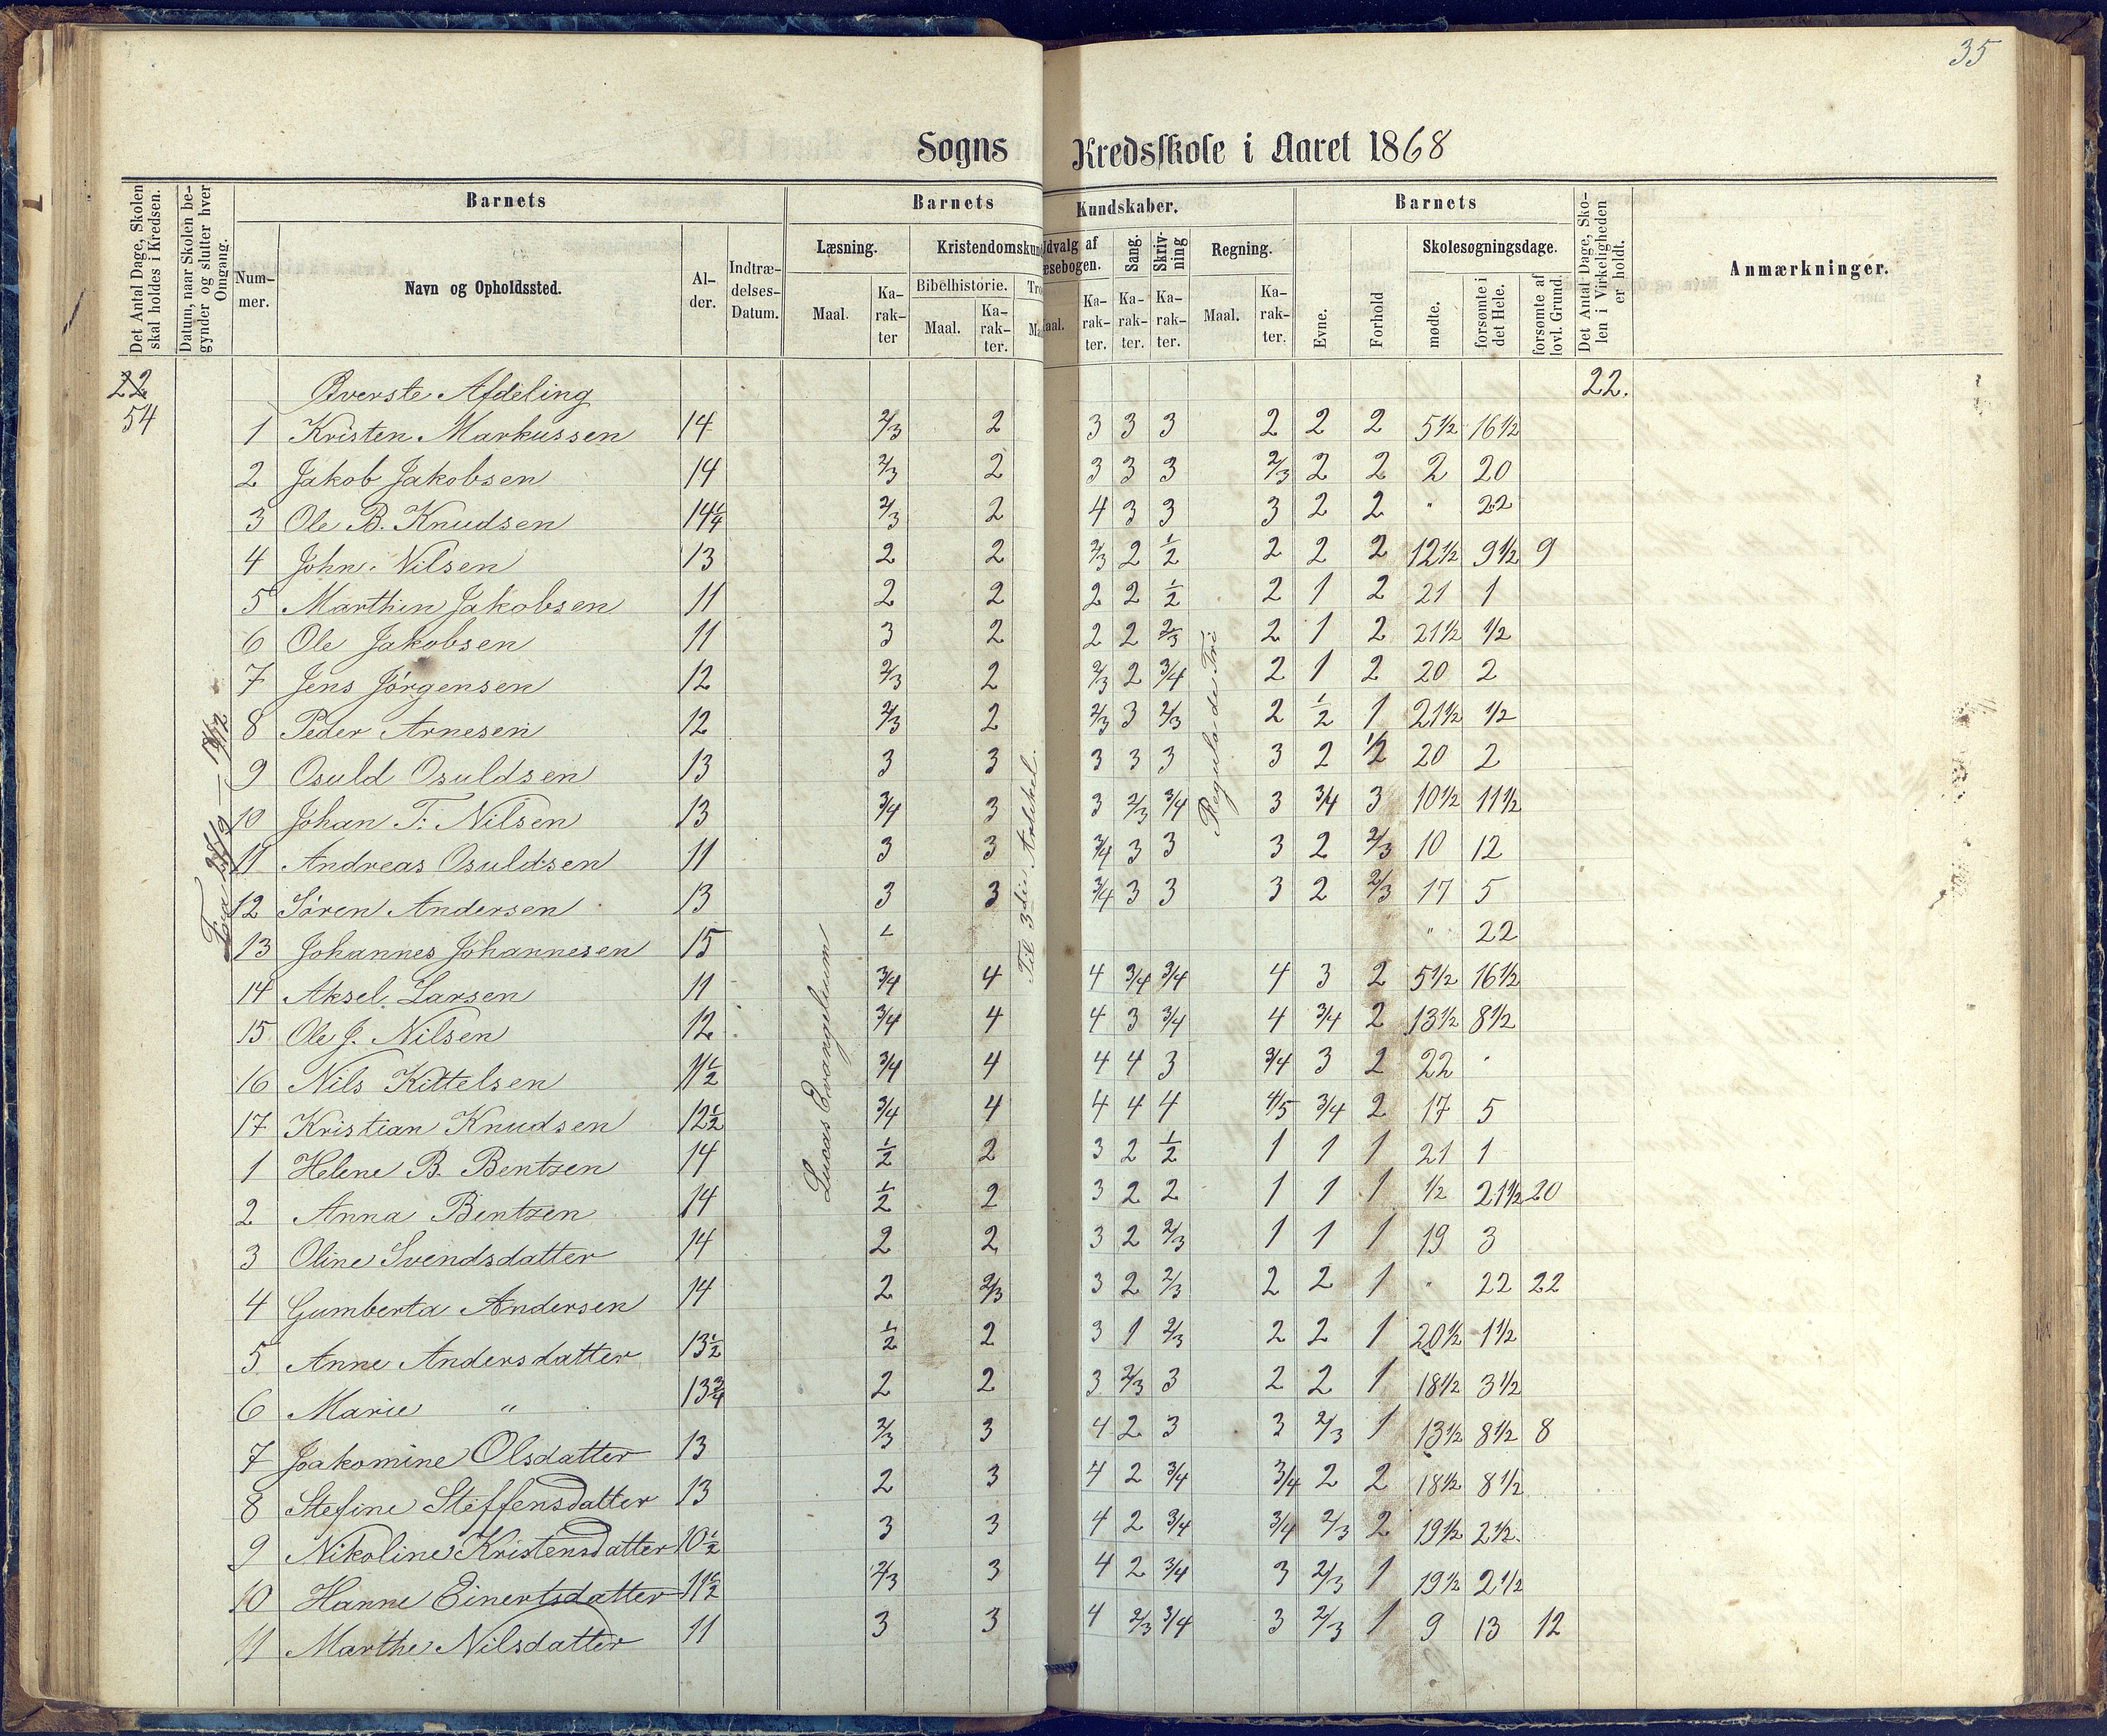 35
Sogns Kredsskole i Aaret 1868
Det Antal Dage, Skolen skal holdes i Kredsen.
Datum, naar Skolen begynder og slutter hver Omgang.
Barnets
Nummer.
Navn og Opholdssted.
Alder.
Indtrædelses-Datum.
Barnets Kundskaber.
Læsning.
Maal.
Karakter
Kristendomskun
Bibelhistorie.
Maal.
Karakter.
Tro
Ma
Udvalg af
æsebogen.
aal.
Karakter.
Sang.
Karakter.
Skrivning
Karakter.
Regning.
Maal.
Karakter.
Barnets
Evne.
Forhold
Skolesøgningsdage.
mødte.
forsømte i det Hele.
forsømte af lovl. Grund.
Det Antal Dage, Skolen i Virkeligheden er holdt.
Anmærkninger.
22 Øverste Afdeling 22.
54
Lucas Evangelium
Til 3die Artikel.
Regula de Tri
1 Kristen Markussen 14 2/3 2 3 3 3 2 2 2 5 1/2 16 1/2
2 Jakob Jakobsen 14 2/3 2 3 3 3 2/3 2 2 2 20
3 Ole B. Knudsen 14 1/4 2/3 2 4 3 3 3 2 2 " 22
4 John Nilsen 13 2 2 2/3 2 1/2 2 2 2 12 1/2 9 1/2 9
5 Marthin Jakobsen 11 2 2 2 2 1/2 2 1 2 21 1
6 Ole Jakobsen 11 3 2 2 2 2/3 2 1 2 21 1/2 1/2
7 Jens Jörgensen 12 2/3 2 2/3 2 3/4 2 1 2 20 2
8 Peder Arnesen 12 2/3 2 2/3 3 2/3 2 1/2 1 21 1/2 1/2
9 Osuld Osuldsen 13 3 3 3 3 3 3 2 1/2 20 2
10 Johan T. Nilsen 13 3/4 3 3 2/3 3/4 3 3/4 3 10 1/2 11 1/2
11 Andreas Osuldsen 11 3 3 3/4 3 3 3 2 2/3 10 12
12 Sören Andersen 13 3 3 3/4 3 3 3 2 2/3 17 5
13 Johannes Johannesen 15 " 22
14 Aksel Larsen 11 3/4 4 4 3/4 3/4 4 3 2 5 1/2 16 1/2
15 Ole J. Nilsen 12 3/4 4 4 3 3/4 4 3/4 2 13 1/2 8 1/2
16 Nils Kittelsen 11 1/2 3/4 4 4 4 3 3/4 3 2 22 "
17 Kristian Knudsen 12 1/2 3/4 4 4 4 4 4/5 3/4 2 17 5
1 Helene B. Bentzen 14 1/2 2 3 2 1/2 1 1 1 21 1
2 Anna Bentzen 14 1/2 2 3 2 2 1 1 1 1/2 21 1/2 20
3 Oline Svendsdatter 14 2 2 3 2 2/3 1 1 1 19 3
4 Gumberta Andersen 14 2 2/3 3 2 2/3 2 2 1 " 22 22
5 Anne Andersdatter 13 1/2 1/2 2 3 1 2/3 2 2 1 20 1/2 1 1/2
6 Marie " 13 3/4 2 2 3 2/3 3 2 2 1 18 1/2 3 1/2
7 Joakomine Olsdatter 13 2/3 3 4 2 3 3 2/3 1 13 1/2 8 1/2 8
8 Stefine Steffensdatter 13 2 3 4 2 3/4 3/4 2 2 18 1/2 8 1/2
9 Nikoline Kristensdatter 10 1/2 3 3 4 2 3/4 3/4 2/3 2 19 1/2 2 1/2
10 Hanne Einertsdatter 11 1/2 2/3 3 4 2 3/4 3 2/3 1 19 1/2 2 1/2
11 Marthe Nilsdatter 11 3 3 4 2/3 3/4 3 2/3 1 9 13 12